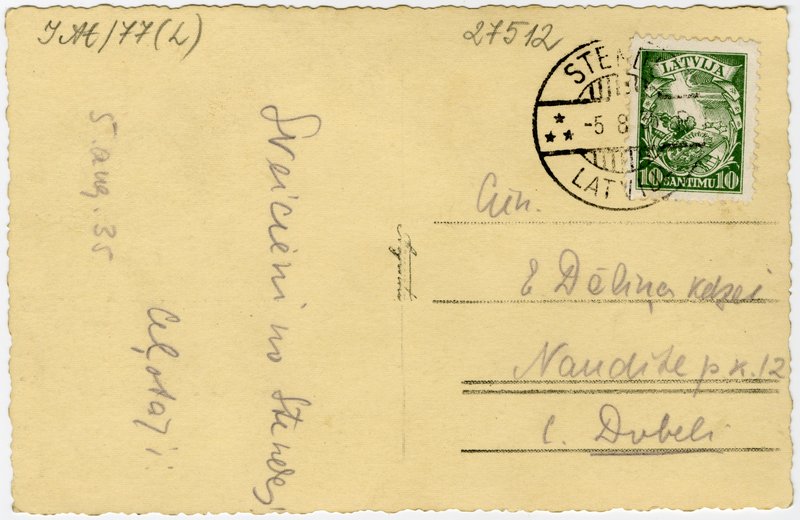 JAK/77(L)
27512
STENDE
-5 8
LATVIJA
LATVIJA
10 SANTIMU 10
5. aug. 35
Sveicieni no Stendes,
Ceļotāji
Cien.
E Dāliņa kdzei
Naudīte pk. 12
c. Dobeli